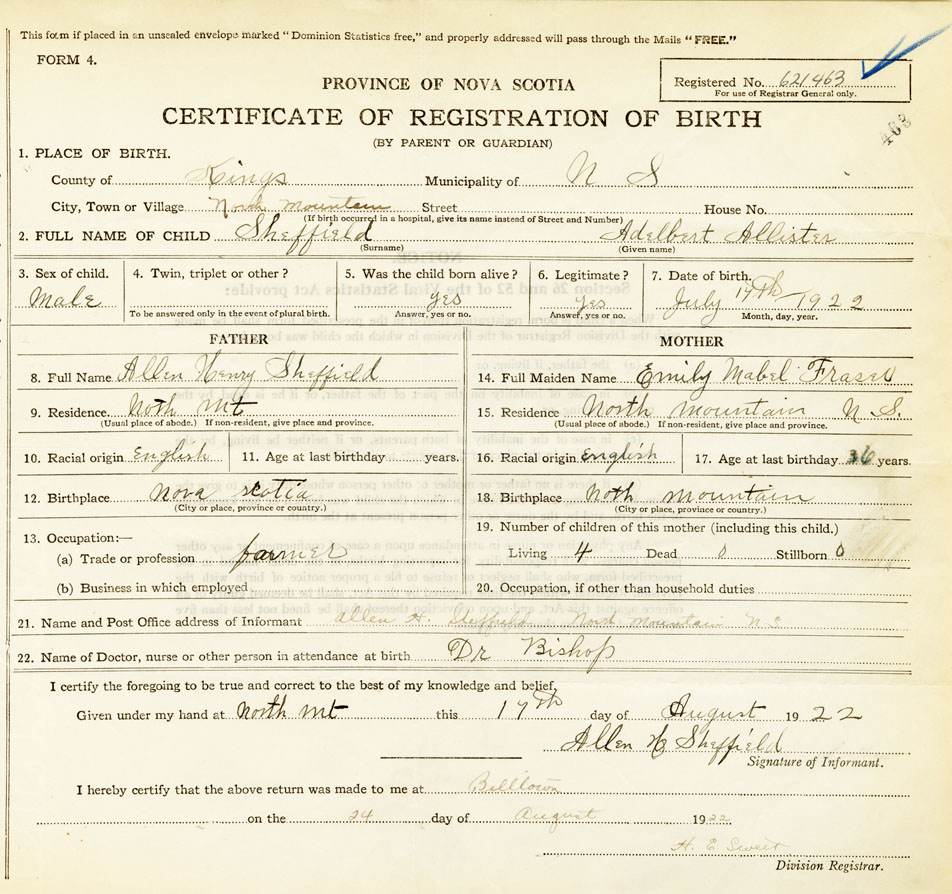 This form if placed in an unsealed envelope marked "Dominion Statistics free," and properly addressed will pass through the Mails "FREE."
FORM 4.
Registered No. 621463
For use of Registrar General only.
PROVINCE OF NOVA SCOTIA
CERTIFICATE OF REGISTRATION OF BIRTH
463
(BY PARENT OR GUARDIAN)
1. PLACE OF BIRTH.
County of Kings Municipality of N S
City, Town or Village North Mountain Street House No.
(If birth occurred in a hospital, give its name instead of Street and Number)
2. FULL NAME OF CHILD Sheffield Adelbert Allister
(Surname) (Given name)
3. Sex of child. 4. Twin, triplet or other? 5. Was the child born alive? 6. Legitimate? 7. Date of birth.
Male yes yes July 17th 1922
To be answered only in the event of plural birth. Answer, yes or no. Answer, yes or no. Month, day, year.
FATHER MOTHER
8. Full Name Allen Henry Sheffield 14. Full Maiden Name Emily Mabel Fraser
9. Residence Noth Mt 15. Residence North Mountain N S.
(Usual place of abode.) If non-resident, give place and province. (Usual place of abode.) If non-resident, give place and province.
10. Racial origin English 11. Age at last birthday years. 16. Racial origin English 17. Age at last birthday 36 years.
12. Birthplace Nova Scotia 18. Birthplace Noth Mountain
(City or place, province or country.) (City or place, province or country.)
13. Occupation:— 19. Number of children of this mother (including this child.)
(a) Trade or profession farmer Living 4 Dead 0 Stillborn 0
(b) Business in which employed 20. Occupation, if other than household duties
21. Name and Post Office address of Informant Allen H. Sheffield North Mountain N S
22. Name of Doctor, nurse or other person in attendance at birth Dr Bishop
I certify the foregoing to be true and correct to the best of my knowledge and belief,
Given under my hand at North Mt this 17th day of August 1922
Allen H Sheffield
Signature of Informant.
I hereby certify that the above return was made to me at Billtown
on the 24 day of August 1922
H. E. Sweet
Division Registrar.